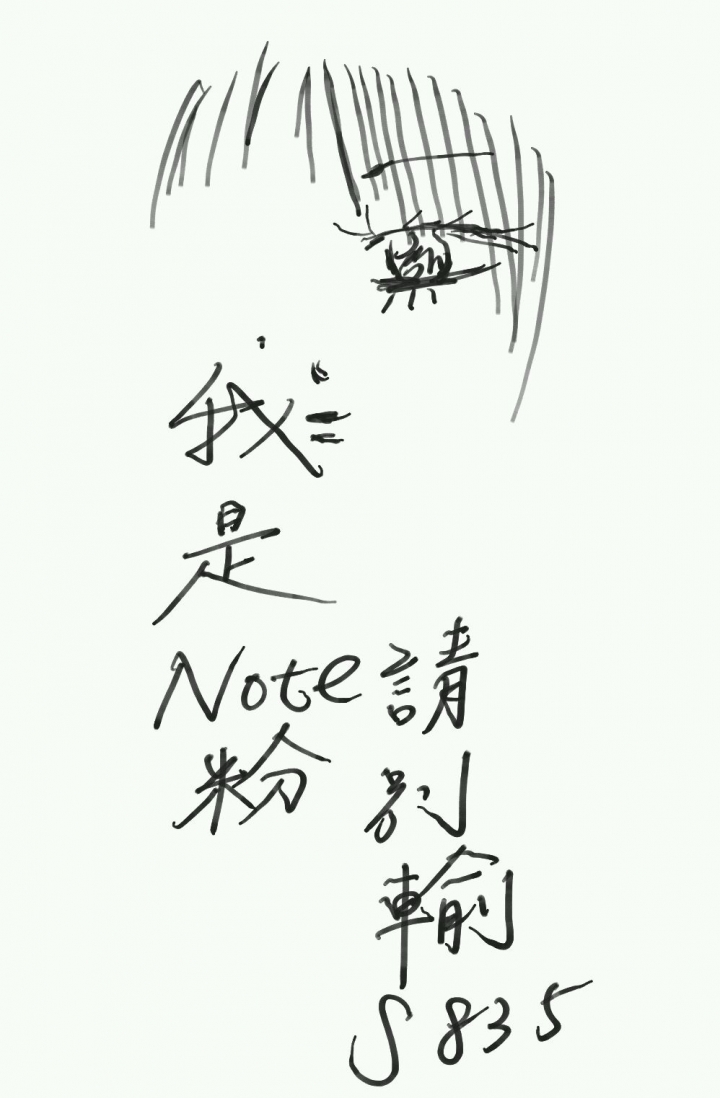 我是Note粉
請別輸S835